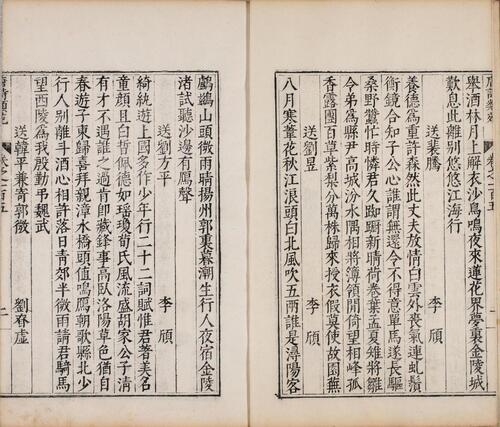 舉酒林月上解衣沙鳥鳴夜來蓮花界夢裏金陵城
歎息此離別悠悠江海行
送裴騰 李頎
養德為重許森然此丈夫放情白雲外喪氣連虬鬚
衡鏡合知子公心誰謂無還令不得意單馬遂長驅
桑野蠶忙時憐君久踟躕新晴荷卷葉孟夏雉將雛
令弟為縣尹高城汾水隅相將簿領閒倚望相峰孤
香露團百草紫梨分萬株歸來授衣假莫使故園蕪
送劉昱 李頎
八月寒葦花秋江浪頭白北風吹五兩誰是潯陽客
鸕鷀山頭微雨晴揚州郭裏暮潮生行人夜宿金陵
渚試聽沙邊有鴈聲
送劉方平 李頎
綺紈遊上國多作少年行二十二詞賦惟君著美名
童顏且白皙佩德如瑤瓊荀氏風流盛胡家公子清
有才不偶誰之過肯即藏鋒事高臥洛陽草色猶自
春遊子東歸喜拜親漳水橋頭值鳴鴈朝歌縣北少
行人別離斗酒心相許落日青郊半微雨請君騎馬
望西陵為我殷勤弔魏武
送韓平兼寄郭微 劉脊虛
卷之一百五 二